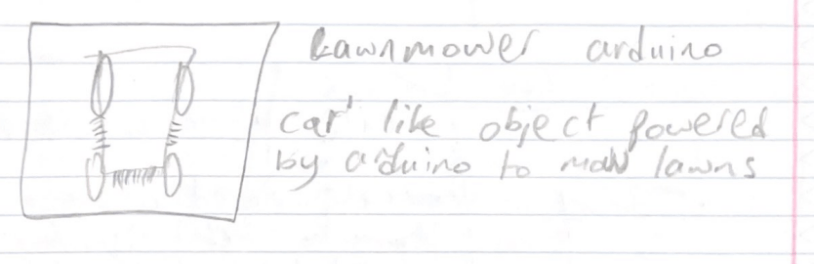 Lawnmower arduino
car' like object powered
by arduino to mow lawns